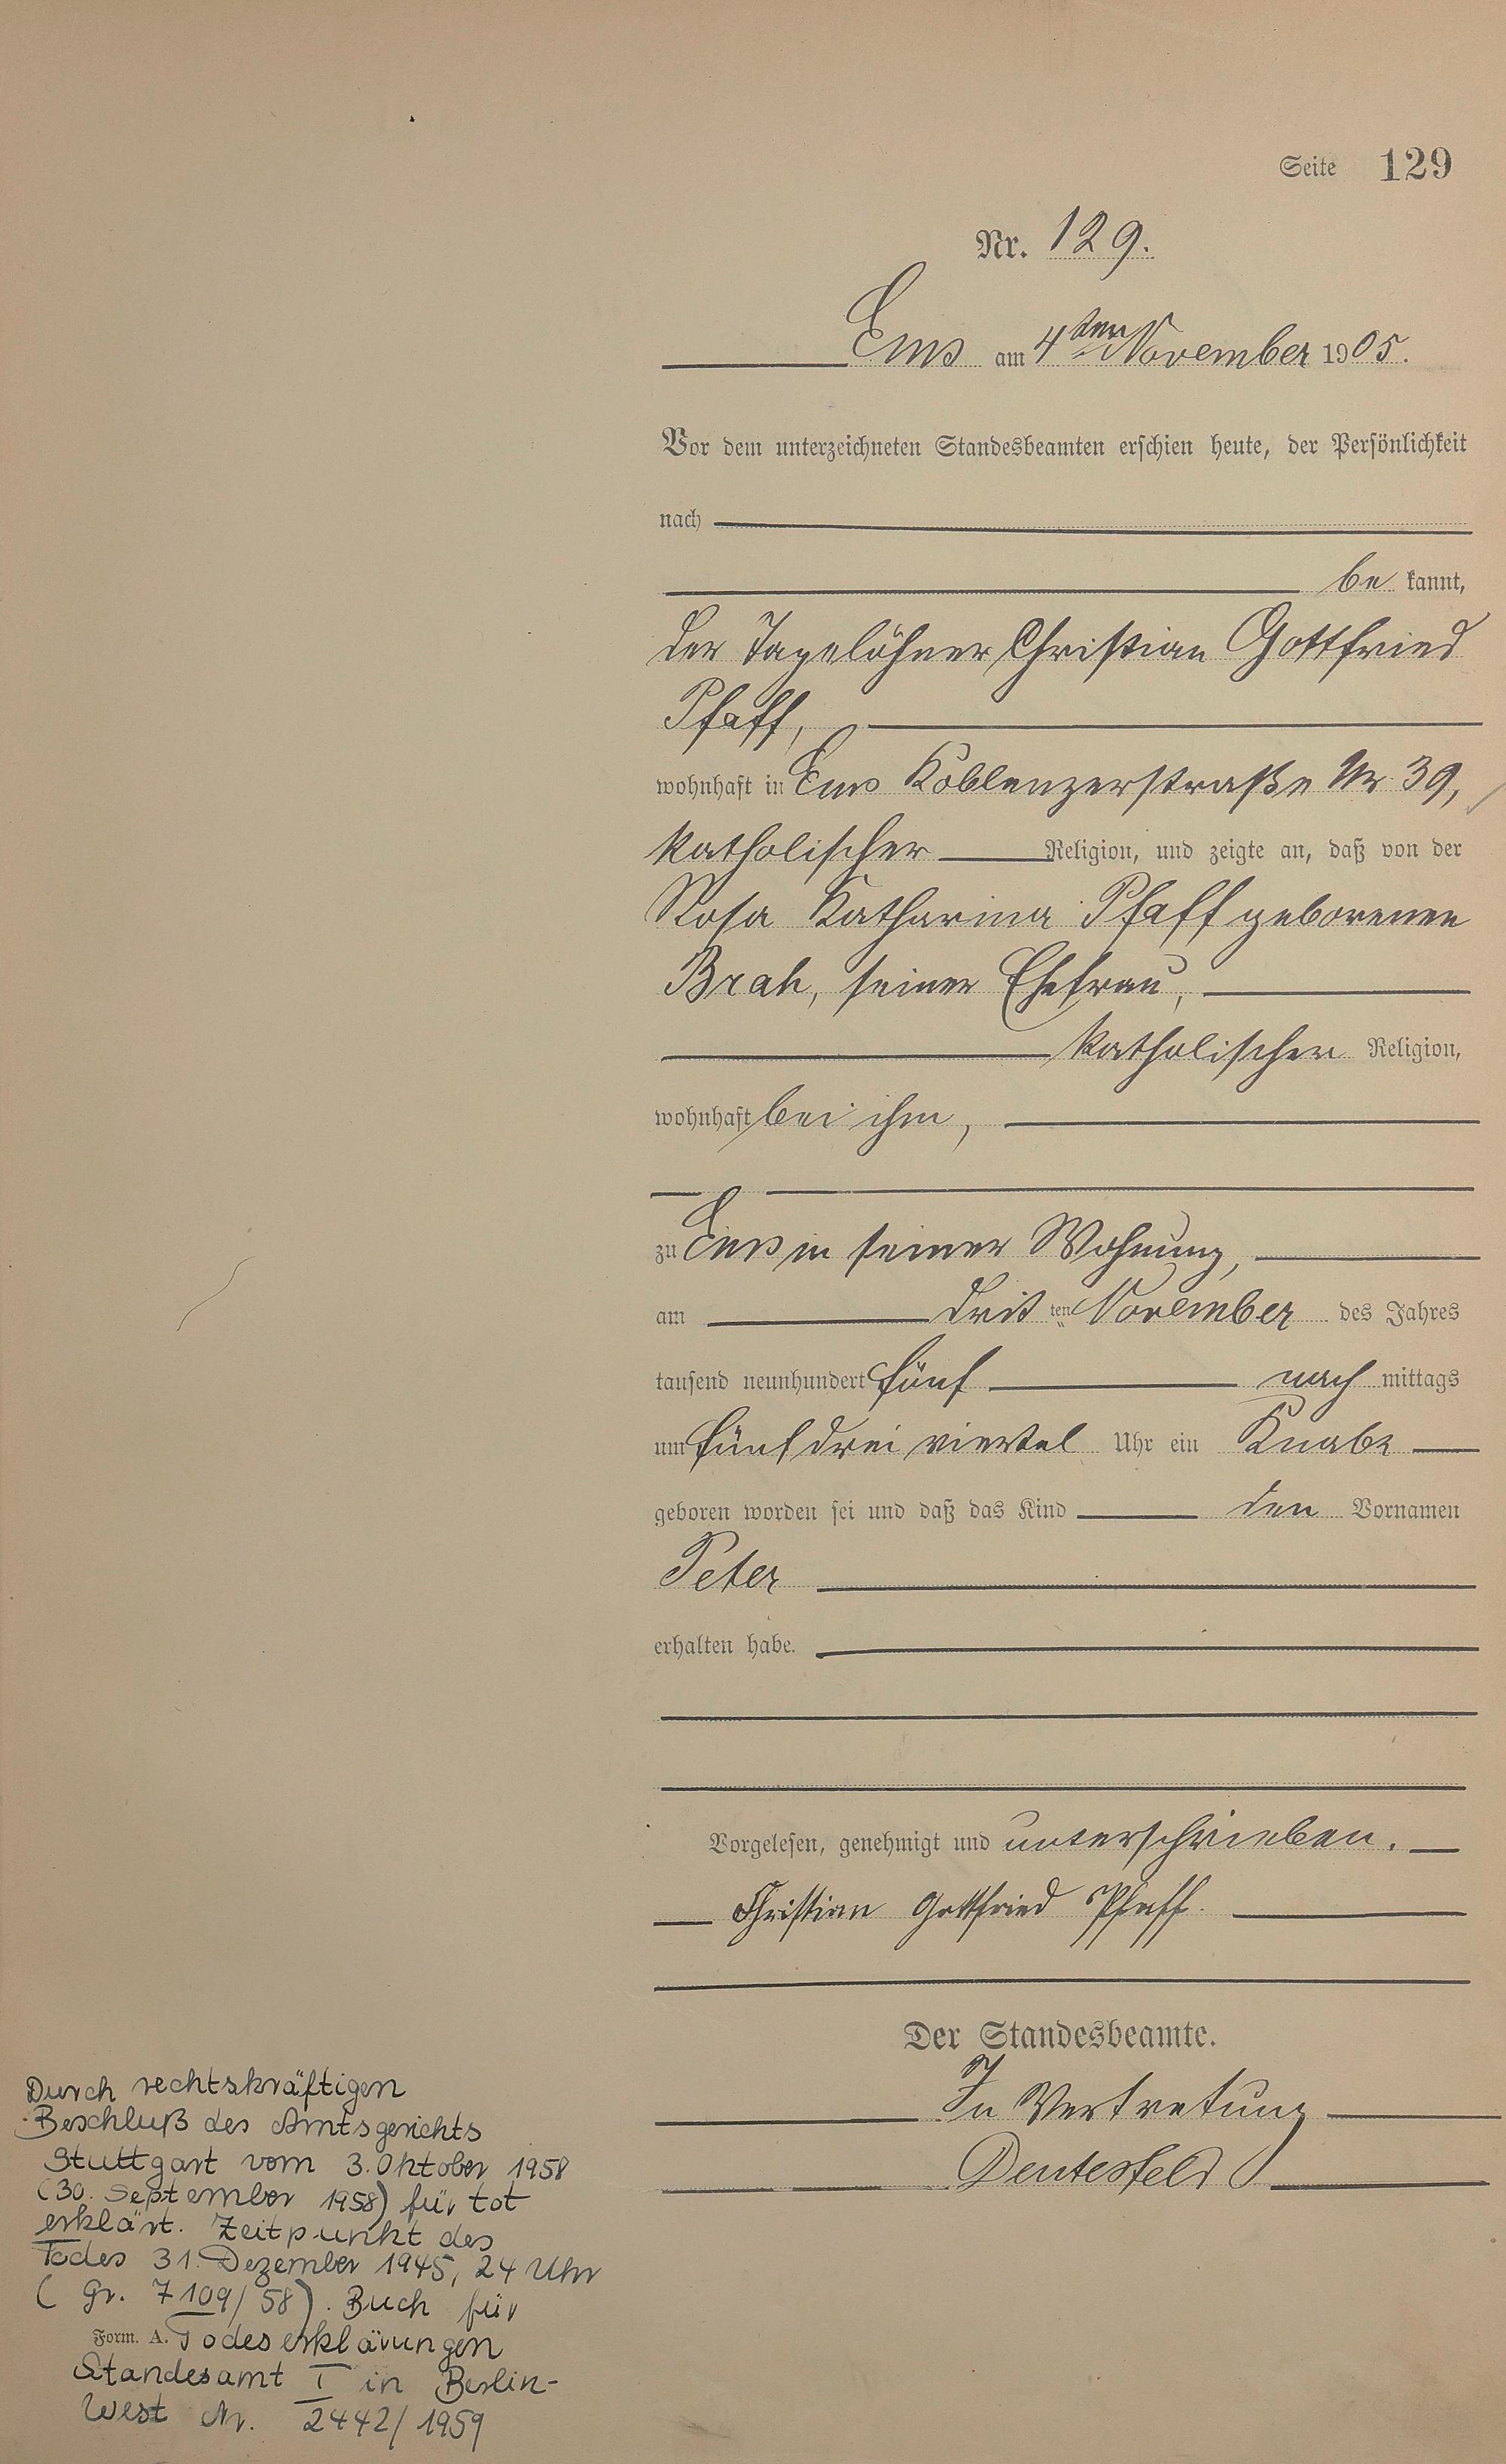 Seite 129
Nr. 129.
Ems am 4ten November 1905.
Vor dem unterzeichneten Standesbeamten erschien heute, der Persönlichkeit
nach
be kannt,
der Tagelöhner Christian Gottfried
Pfaff,
wohnhaft in Ems Koblenzerstraße Nr. 39,
katholischer Religion, und zeigte an, daß von der
Rosa Katharina Pfaff geborenen
Brah, seiner Ehefrau,
katholischer Religion,
wohnhaft bei ihm,
zu Ems in seiner Wohnung,
am drit ten November des Jahres
tausend neunhundert fünf nach mittags
um fünf drei viertel Uhr ein Knabe
geboren worden sei und daß das Kind den Vornamen
Peter
erhalten habe.
Vorgelesen, genehmigt und unterschrieben.
Christian Gottfried Pfaff.
Der Standesbeamte.
In Vertretung
Deutesfeld
Durch rechtskräftigen
Beschluß des Amtsgerichts
Stuttgart vom 3. Oktober 1958
(30. September 1958) für tot
erklärt. Zeitpunkt des
Todes 31. Dezember 1945, 24 Uhr
(Gr. 7109/58). Buch für
Form. A. Todeserklärungen
Standesamt I in Berlin-
West Nr. 2442/1959